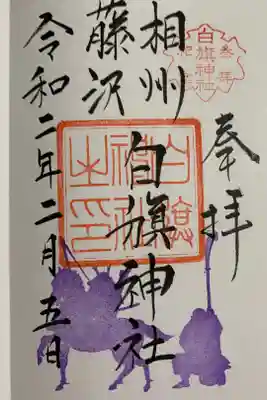 奉拝
白旗神社
参拝
記念
相州
藤沢
白旗神社
白旗神社之印
令和二年二月五日